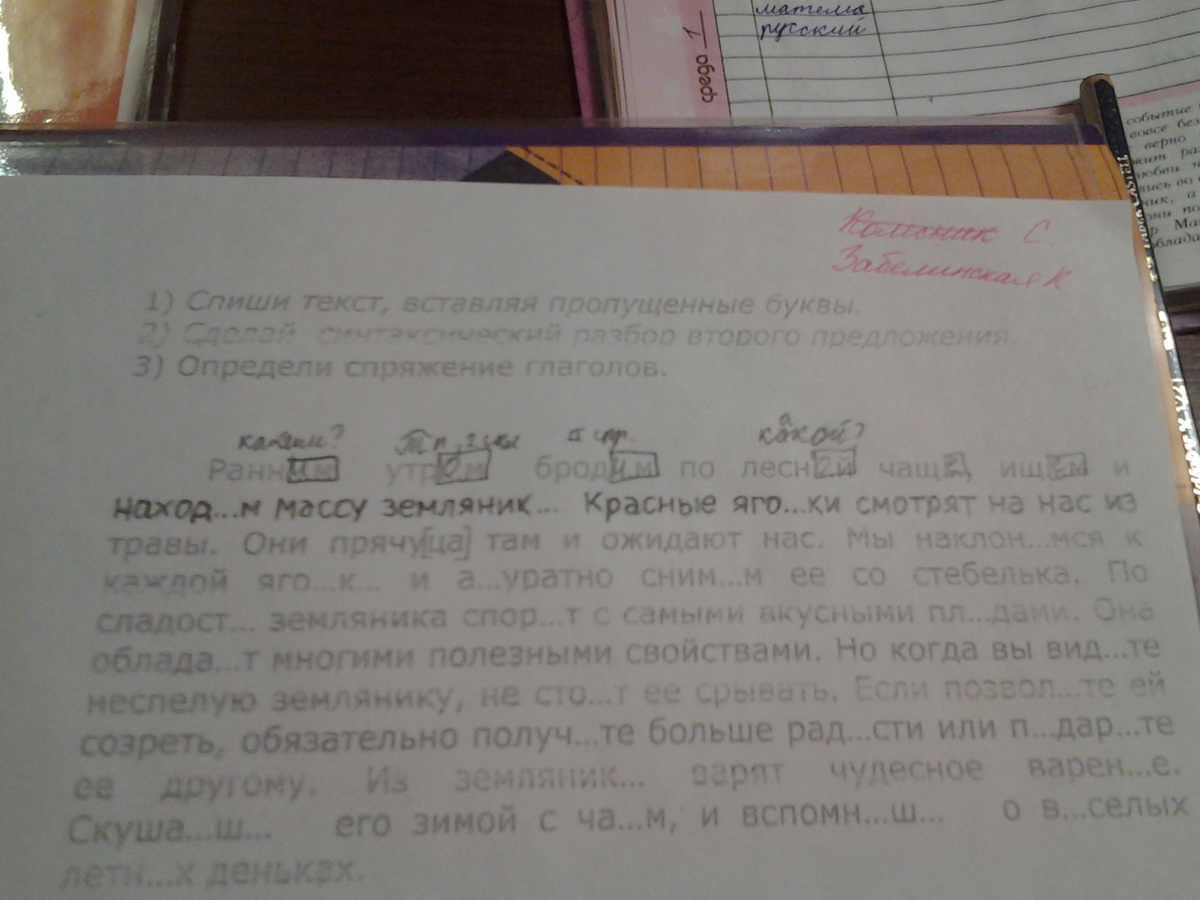 матема
русский
фгдо
событие
вовсе без
верно
Колесник С.
Забелинская К
1) Спиши текст, вставляя пропущенные буквы.
2) Сделай синтаксический разбор второго предложения.
3) Определи спряжение глаголов.
какими? Т п, 2 скл II спр. какой?
Ранним утром бродим по лесной чаще, ищем и
наход...м массу земляник... Красные яго...ки смотрят на нас из
травы. Они прячу[ца] там и ожидают нас. Мы наклон...мся к
каждой яго...к... и а...уратно сним...м ее со стебелька. По
сладост... земляника спор...т с самыми вкусными пл...дами. Она
облада...т многими полезными свойствами. Но когда вы вид...те
неспелую землянику, не сто...т ее срывать. Если позвол...те ей
созреть, обязательно получ...те больше рад...сти или п...дар...те
ее другому. Из земляник... варят чудесное варен...е.
Скуша...ш... его зимой с ча...м, и вспомн...ш... о в...селых
летн...х деньках.